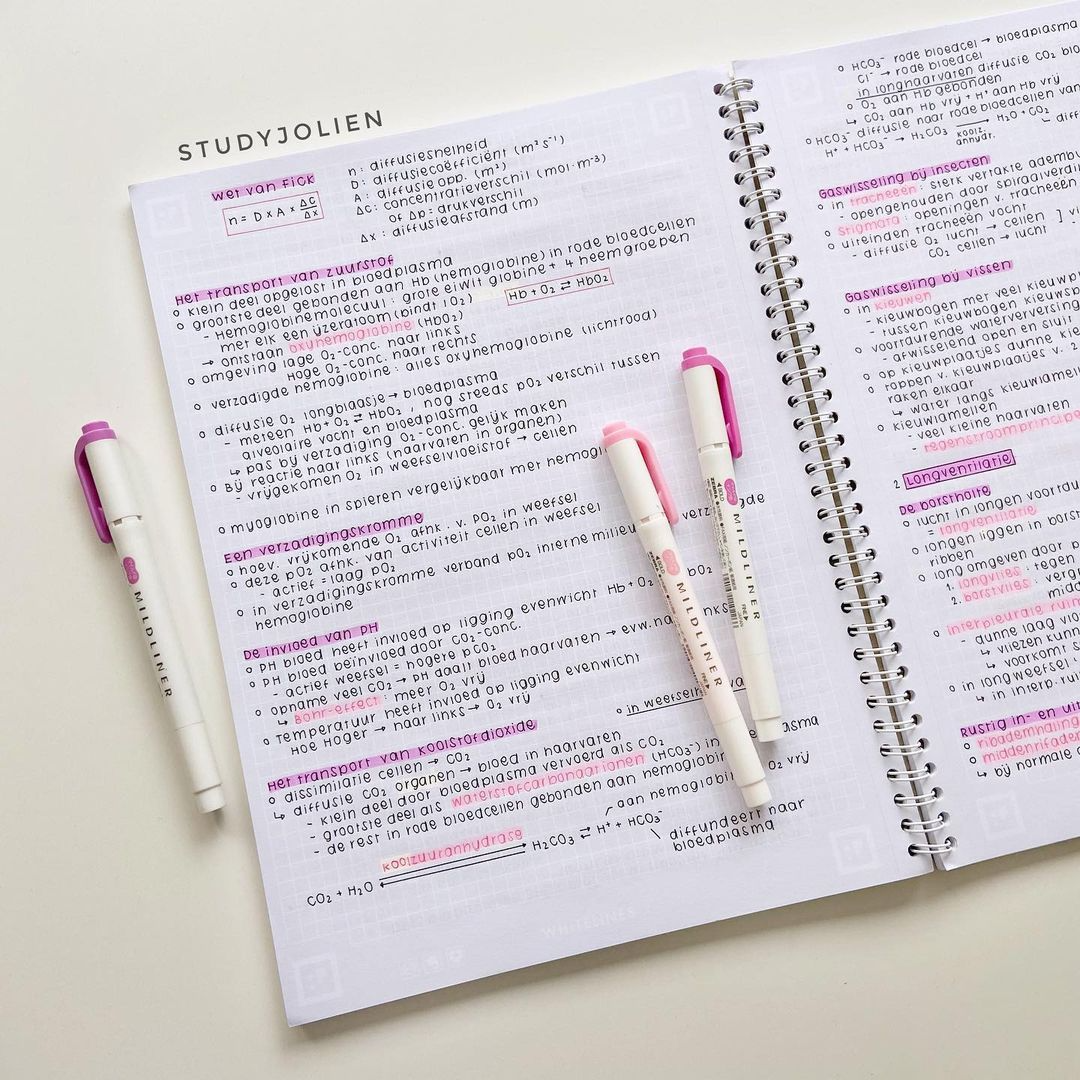 STUDYJOLIEN
wet van Fick
n = D x A x Δc/Δx
n : diffusiesnelheid
D : diffusiecoëfficiënt (m² s⁻¹)
A : diffusie opp. (m²)
Δc : concentratieverschil (mol·m⁻³)
of Δp = drukverschil
Δx : diffusieafstand (m)
Het transport van zuurstof
o klein deel opgelost in bloedplasma
o grootste deel gebonden aan Hb (hemoglobine) in rode bloedcellen
- Hemoglobinemolecuul : grote eiwit globine + 4 heemgroepen
met elk een ijzeratoom (bindt 1 O₂)
Hb + O₂ ⇄ HbO₂
→ ontstaan oxyhemoglobine (HbO₂)
o omgeving lage O₂-conc. naar links
Hoge O₂-conc. naar rechts
o verzadigde hemoglobine : alles oxyhemoglobine (lichtrood)
o diffusie O₂ longblaasje → bloedplasma
- meteen Hb + O₂ ⇄ HbO₂ , nog steeds pO₂ verschil tussen
alveolaire vocht en bloedplasma
↳ pas bij verzadiging O₂-conc. gelijk maken
o Bij reactie naar links (haarvaten in organen)
- vrijgekomen O₂ in weefselvloeistof → cellen
o myoglobine in spieren vergelijkbaar met hemogl
Een verzadigingskromme
o hoev. vrijkomende O₂ afhk. v. pO₂ in weefsel
o deze pO₂ afhk. van activiteit cellen in weefsel
- actief = laag pO₂
o in verzadigingskromme verband pO₂ interne milieu verz gde
hemoglobine
De invloed van pH
o pH bloed heeft invloed op ligging evenwicht Hb + O₂ bO₂
o pH bloed beïnvloed door CO₂-conc.
- actief weefsel = hogere pCO₂
o opname veel CO₂ → pH daalt bloed haarvaten → evw. na nks
↳ Bohr-effect : meer O₂ vrij
o Temperatuur heeft invloed op ligging evenwicht
Hoe Hoger → naar links → O₂ vrij
o in weefselh va
Het transport van koolstofdioxide
o dissimilatie cellen → CO₂
↳ diffusie CO₂ organen → bloed in haarvaten
- klein deel door bloedplasma vervoerd als CO₂
- grootste deel als waterstofcarbonaationen (HCO₃⁻) in asma
- de rest in rode bloedcellen gebonden aan hemoglobi O₂ vrij
aan hemoglobi
CO₂ + H₂O koolzuuranhydrase H₂CO₃ ⇄ H⁺ + HCO₃⁻
diffundeert naar
bloedplasma
WHITELINES
MILDLINER
MILDLINER
ZEBRA
MILDLINER
o HCO₃⁻ rode bloedcel → bloedplasma
Cl⁻ → rode bloedcel
in longhaarvaten diffusie CO₂ blo
o O₂ aan Hb gebonden
↳ CO₂ aan Hb vrij + H⁺ aan Hb vrij
o HCO₃⁻ diffusie naar rode bloedcellen van
H⁺ + HCO₃⁻ → H₂CO₃ koolz. anhydr. → H₂O + CO₂
diff
Gaswisseling bij insecten
o in tracheeën : sterk vertakte adembu
- opengehouden door spiraalverdi
o stigmata : openingen v. tracheeën
o uiteinden tracheeën vocht
- diffusie O₂ lucht → cellen ] vi
CO₂ cellen → lucht
Gaswisseling bij vissen
o in kieuwen
- kieuwbogen met veel kieuwp
- tussen kieuwbogen kieuwsp
o voortdurende waterverversing
- afwisselend open en sluit
o op kieuwplaatjes dunne kie
o toppen v. kieuwplaatjes v. 2
raken elkaar
↳ water langs kieuwlamell
o kieuwlamellen
- veel kleine haarvaten
- tegenstroomprincipe
2 Longventilatie
De borstholte
o lucht in longen voortdu
= longventilatie
o longen liggen in borst
ribben
o long omgeven door p
1. longvlies : tegen
2. borstvlies : midd
o interpleurale ruim
- dunne laag vlo
↳ vliezen kunn
↳ voorkomt s
o in longweefsel
↳ in interp. ruim
Rustig in- en uit
o ribademhaling
o middenrifadem
↳ bij normale